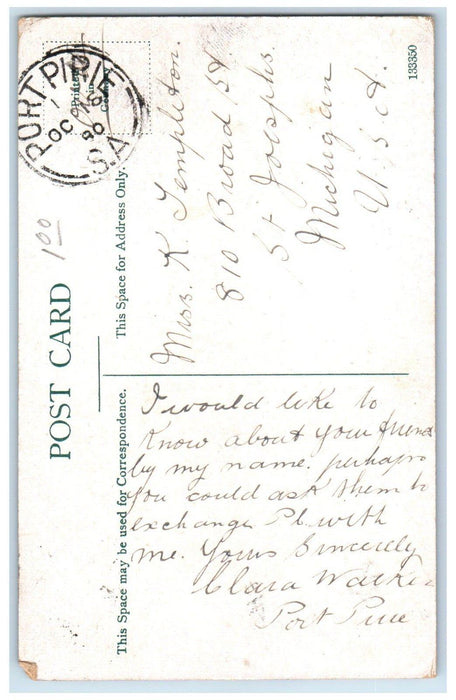 POST CARD
This Space may be used for Correspondence.
This Space for Address Only.
Printed
in
133350
PORT PIRIE
OC
S.A
1 00
Miss. K. Templeton.
810 Broad St
St Joesphs
Michigan
U.S.A.
I would like to
Know about your friend
by my name. perhaps
you could ask them to
exchange P.c. with
me. Yours Sincerely
Clara
Port Pirie